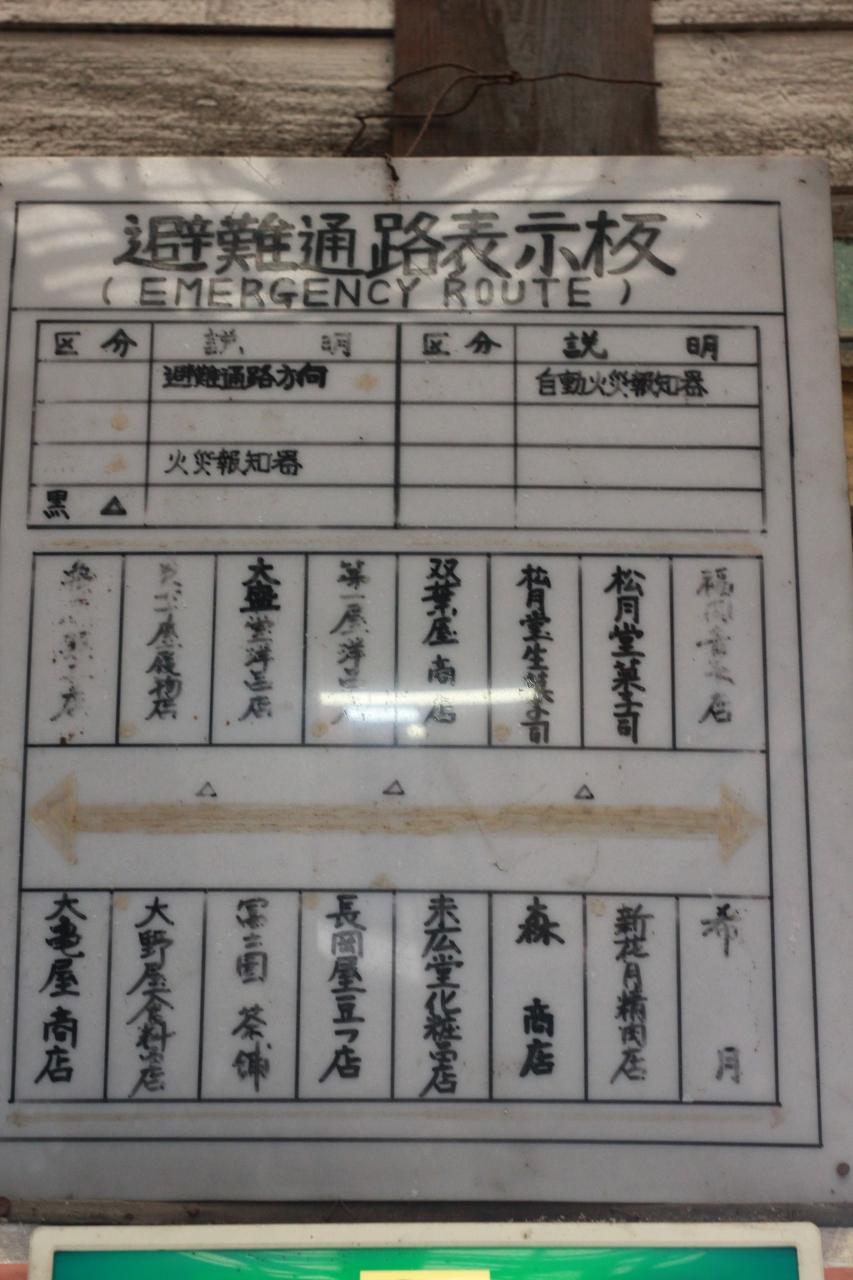 避難通路表示板
( EMERGENCY ROUTE )
区分 説明 区分 説明
避難通路方向 自動火災報知器
火災報知器
黒 △
大盛堂洋品店
第一屋洋品
双葉屋 商店
松月堂生菓子司
松月堂菓子司
△ △ △
大亀屋 商店
大野屋食料品店
冨士園 茶舗
長岡屋豆フ店
末広堂化粧品店
森 商店
新花月精肉店
希 月